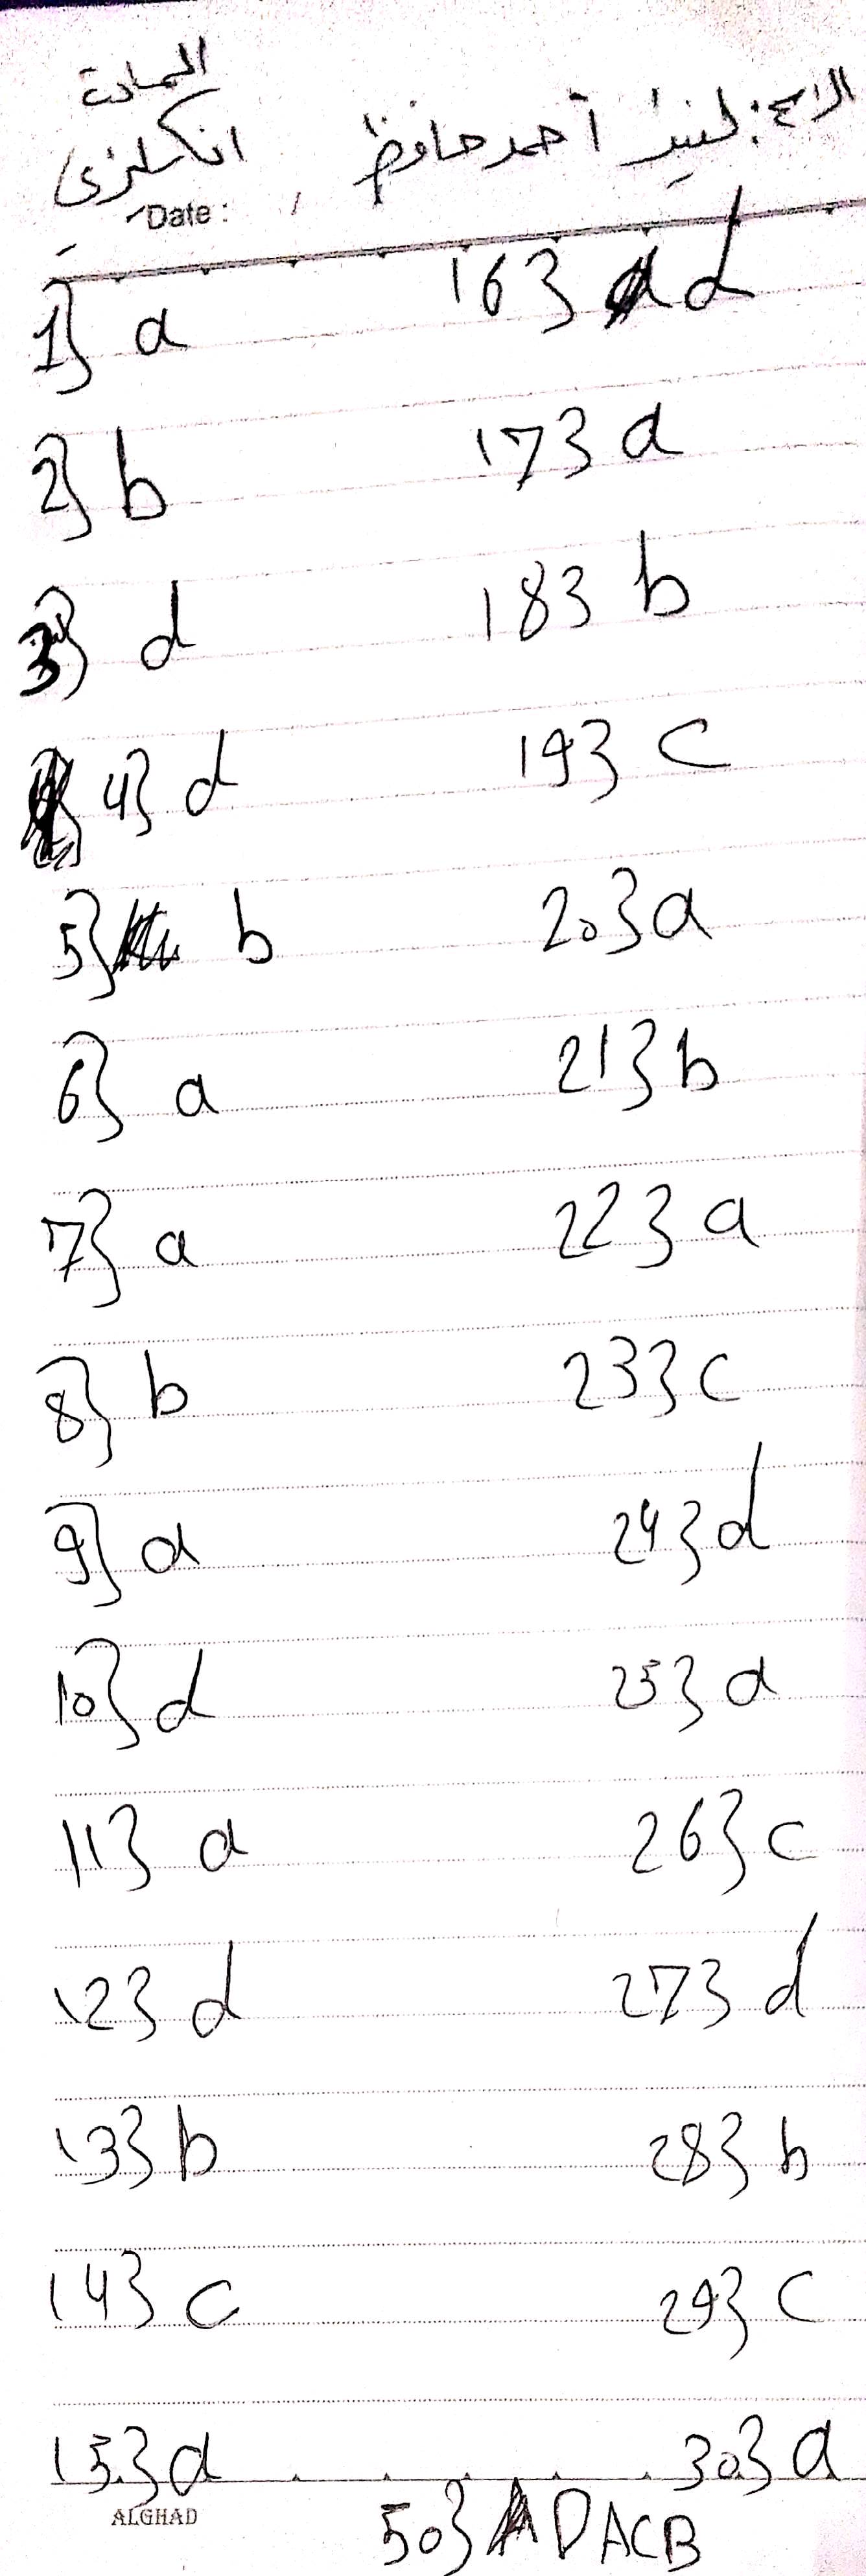 المادة
الاسم: لبنى أحمد حافظ
انكليزي
Date: /
1} a
2} b
3} d
4} d
5} b
6} a
7} a
8} b
9} a
10} d
11} a
12} d
13} b
14} c
15} d
16} d
17} a
18} b
19} c
20} a
21} b
22} a
23} c
24} d
25} a
26} c
27} d
28} b
29} c
30} a
ALGHAD
50} DACB